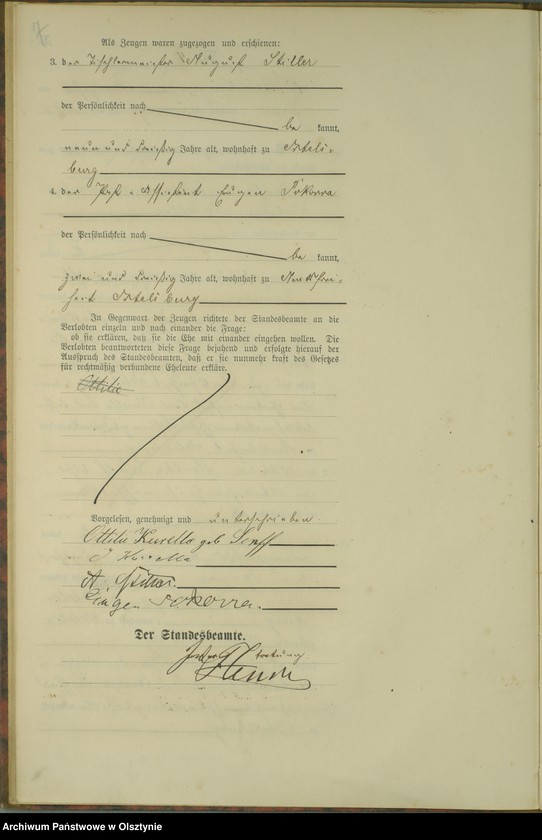 Als Zeugen waren zugezogen und erschienen:
3. der Tischlermeister August Stiller
der Persönlichkeit nach
be kannt,
neun und dreißig Jahre alt, wohnhaft zu Ortels-
burg
4. der Post-Assistent Eugen Sokorra
der Persönlichkeit nach
be kannt,
zwei und dreißig Jahre alt, wohnhaft zu
heit Ortelsburg
In Gegenwart der Zeugen richtete der Standesbeamte an die
Verlobten einzeln und nach einander die Frage:
ob sie erklären, daß sie die Ehe mit einander eingehen wollen. Die
Verlobten beantworteten diese Frage bejahend und erfolgte hierauf der
Ausspruch des Standesbeamten, daß er sie nunmehr kraft des Gesetzes
für rechtmäßig verbundene Eheleute erkläre.
Ottilie
Vorgelesen, genehmigt und unterschrieben.
Ottilie Kurella geb Senff
Kurella
A. Stiller.
Eugen Sokorra.
Der Standesbeamte.
In Vertretung
Archiwum Państwowe w Olsztynie